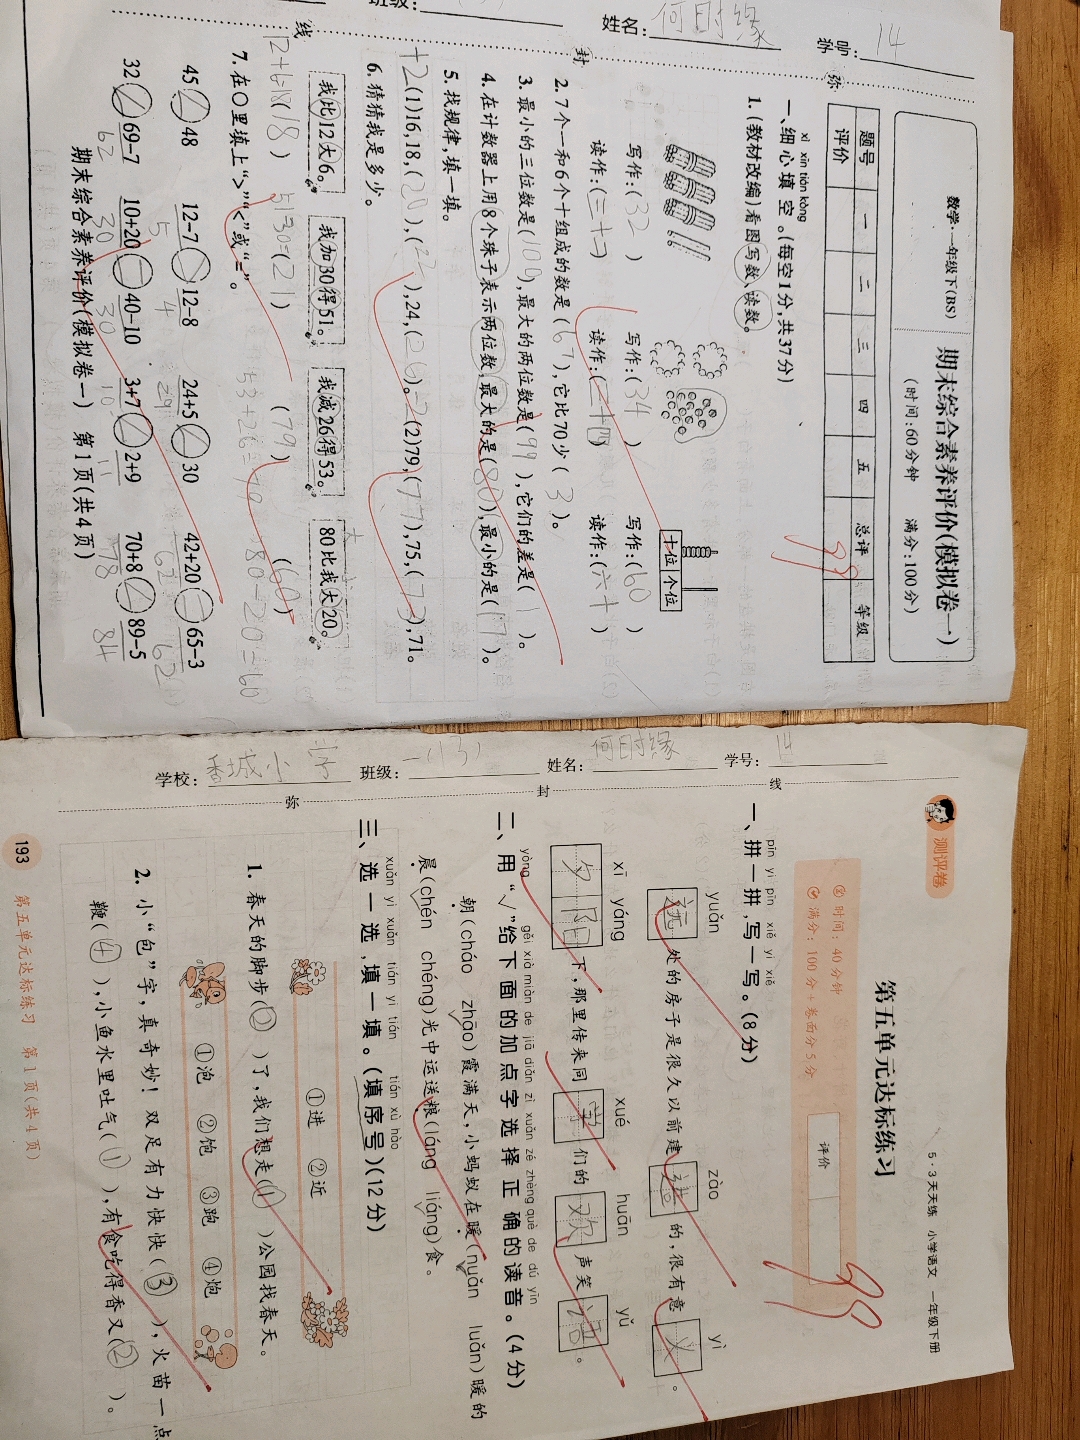 班级:
姓名: 何时缘
学号: 14
弥 封 线
数学·一年级下(BS)
期末综合素养评价(模拟卷一)
(时间:60分钟 满分:100分)
题号 一 二 三 四 五 总评 等级
评价 99
xì xīn tián kòng
一、细心填空。(每空1分,共37分)
1. (教材改编)看图写数、读数。
十位 个位
写作:(32) 写作:(34) 写作:(60)
读作:(三十二) 读作:(三十四) 读作:(六十)
2. 7个一和6个十组成的数是(67),它比70少(3)。
3. 最小的三位数是(100),最大的两位数是(99),它们的差是(1)。
4. 在计数器上用8个珠子表示两位数,最大的是(80),最小的是(17)。
5. 找规律,填一填。
+2 (1)16,18,(20),(22),24,(26)。 -2 (2)79,(77),75,(73),71。
6. 猜猜我是多少。
我比12大6。 我加30得51。 我减26得53。 80比我大20。
12+6=18(18) 51-30=(21) 53+26=79 (79) 80-20=60 (60)
7. 在○里填上“>”“<”或“=”。
45<48 12-7>12-8 24+5<30 42+20=65-3
5 4 29 62 62
32<69-7 10+20=40-10 3+7<2+9 70+8<89-5
62 30 30 10 11 78 84
期末综合素养评价(模拟卷一) 第1页(共4页)
学校: 香城小学 班级: 一(13) 姓名: 何时缘 学号: 14
弥 封 线
测评卷
5·3天天练 小学语文 一年级下册
第五单元达标练习
时间:40分钟
满分:100分+卷面分5分
评价
99
pīn yi pīn xiě yi xiě
一、拼一拼,写一写。(8分)
yuǎn zào yì
远处的房子是很久以前建造的,很有意义。
xī yáng xué huān yǔ
夕阳下,那里传来同学们的欢声笑语。
yòng gěi xià miàn de jiā diǎn zì xuǎn zé zhèng què de dú yīn
二、用“√”给下面的加点字选择正确的读音。(4分)
朝(cháo zhāo√)霞满天,小蚂蚁在暖(nuǎn√ luǎn)暖的
晨(chén√ chéng)光中运送粮(láng liáng√)食。
xuǎn yi xuǎn tián yi tián tián xù hào
三、选一选,填一填。(填序号)(12分)
①进 ②近
1. 春天的脚步(②)了,我们想走(①)公园找春天。
①泡 ②饱 ③跑 ④炮
2. 小“包”字,真奇妙!双足有力快快(③),火苗一点
鞭(④),小鱼水里吐气(①),有食吃得香又(②)。
193 第五单元达标练习 第1页(共4页)